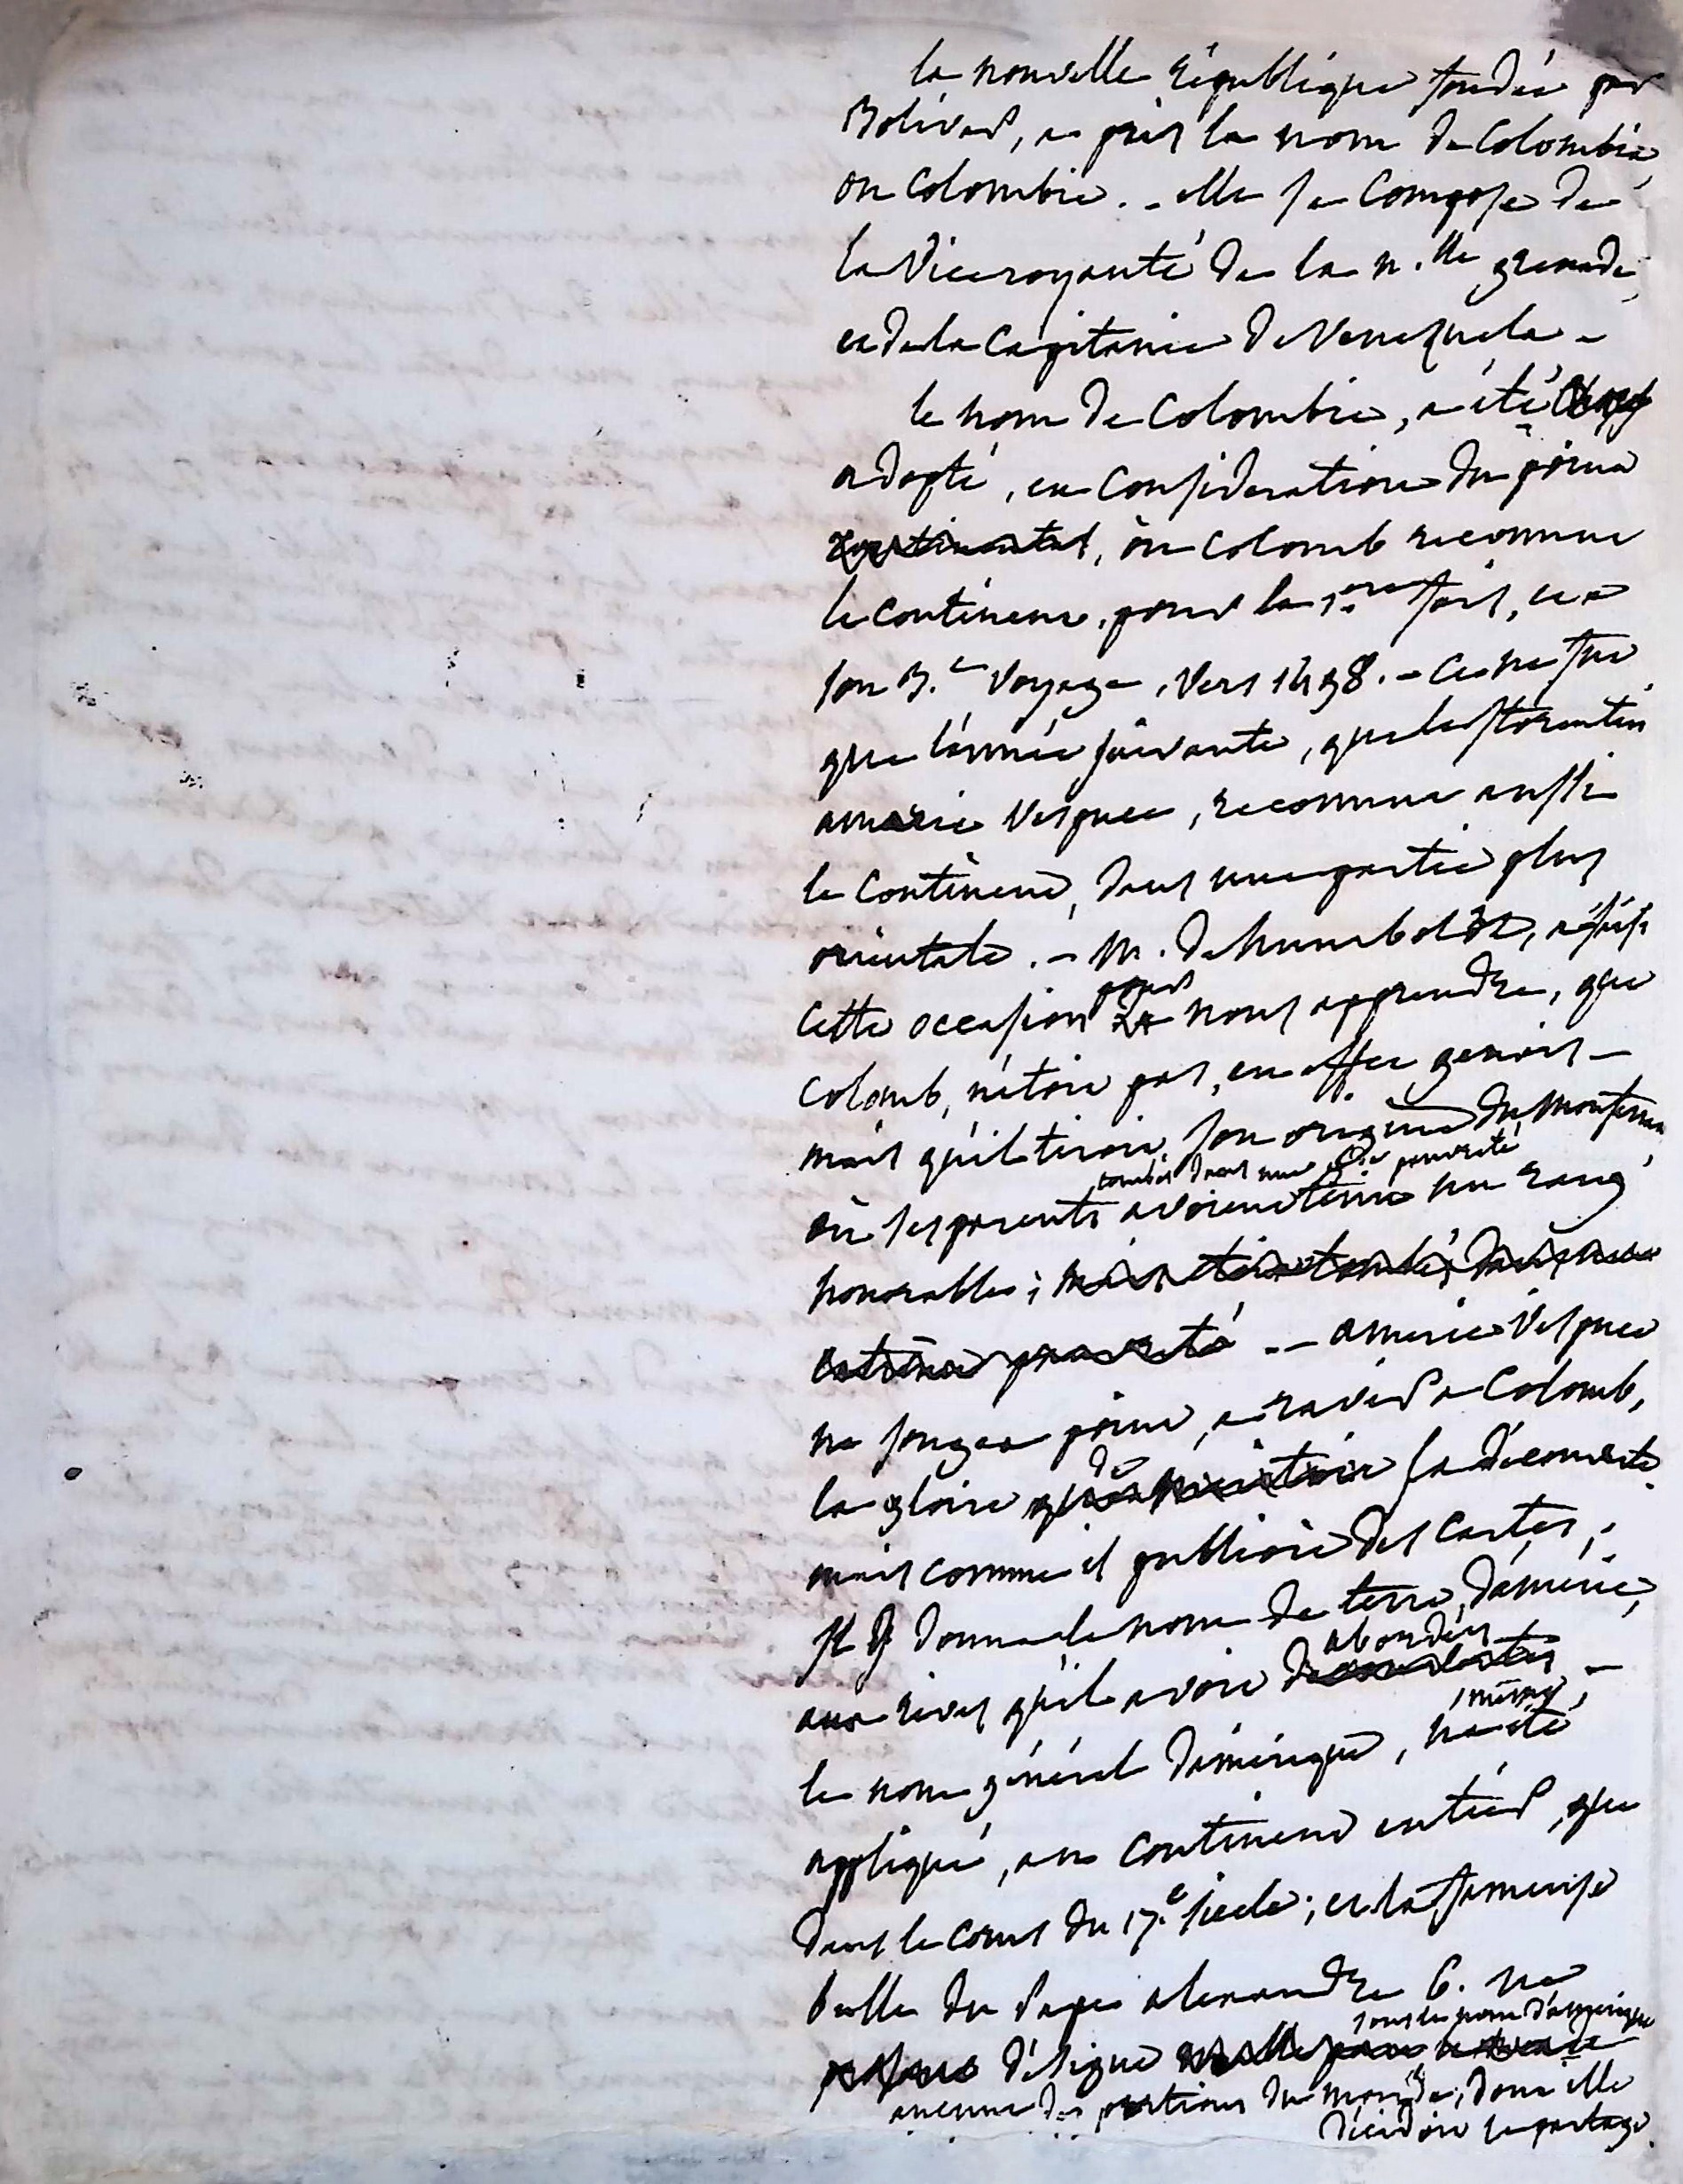 la nouvelle république fondée par
Bolivar, a pris le nom de Colombia,
ou Colombie. - elle se compose de
la Viceroyauté de la n.lle grenade,
et de la Capitanie de Venezuela -
le nom de Colombie, a été
adopté, en consideration du point
continental, où Colomb reconnut
le continent, pour la 1.ere fois, en
son 3.e voyage, vers 1498. - Ce ne fut
que l'année suivante, que le florentin
americ Vespuce, reconnut aussi
le continent, dans une partie plus
orientale. - M. de humboldt, a saisi
cette occasion pour nous apprendre, que
Colomb, n'étoit pas, en effet genois -
mais qu'il tiroit son origine du Montferrat
où ses parents tombés dans une pauvreté avoient tenu un rang
honorable; mais étoient tombés dans une
extrême pauvreté - americ Vespuce
ne songea point, a ravir a Colomb,
la gloire de sa découverte.
mais comme il publioit des cartes,
il donna le nom de terre d'américa,
aux rives qu'il avoit découvertes abordées -
le nom général d'amérique, n'a été même,
appliqué, au continent entier, que
dans le cours du 17.e siecle; et la fameuse
bulle du Pape alexandre 6. ne
désigne sous le nom d'amérique
aucune des portions du monde, dont elle
décidoit le partage.